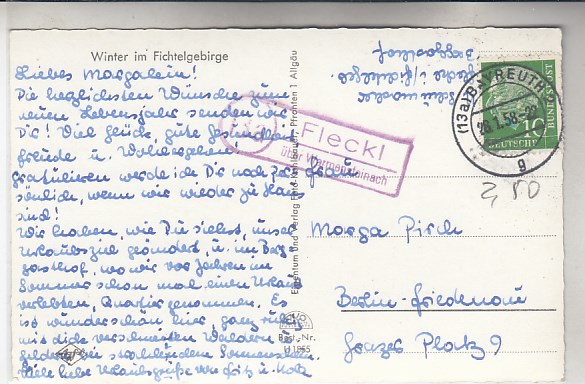 Winter im Fichtelgebirge
Liebes Margalein!
Die herzlichsten Wünsche zum
neuen Lebensjahr senden wir
Dir! Viel Glück, gute Gesundheit
Freude u. Wohlergehen.
Gratulieren werde ich Dir noch per-
sönlich, wenn wir wieder zu Haus
sind!
Wir haben, wie Du siehst, unser
Urlaubsziel geändert, u. im Berg-
gasthof, wo wir vor Jahren im
Sommer schon mal einen Urlaub
verlebten, Quartier genommen. Es
ist wunderschön hier, ganz ruhig
mit dick verschneiten Wäldern u.
bei strahlendem Sonnenschein.
Viele liebe Urlaubsgrüße von Fritz u.
Fleckl
über Warmensteinach
Eigentum und Verlag
Pfronten 1 Allgäu
Best.-Nr.
(13a) BAYREUTH
28.1.58
g
10
DEUTSCHE
BUNDESPOST
2,50
Frau
Marga Pirch
Berlin-Friedenau
Platz 9